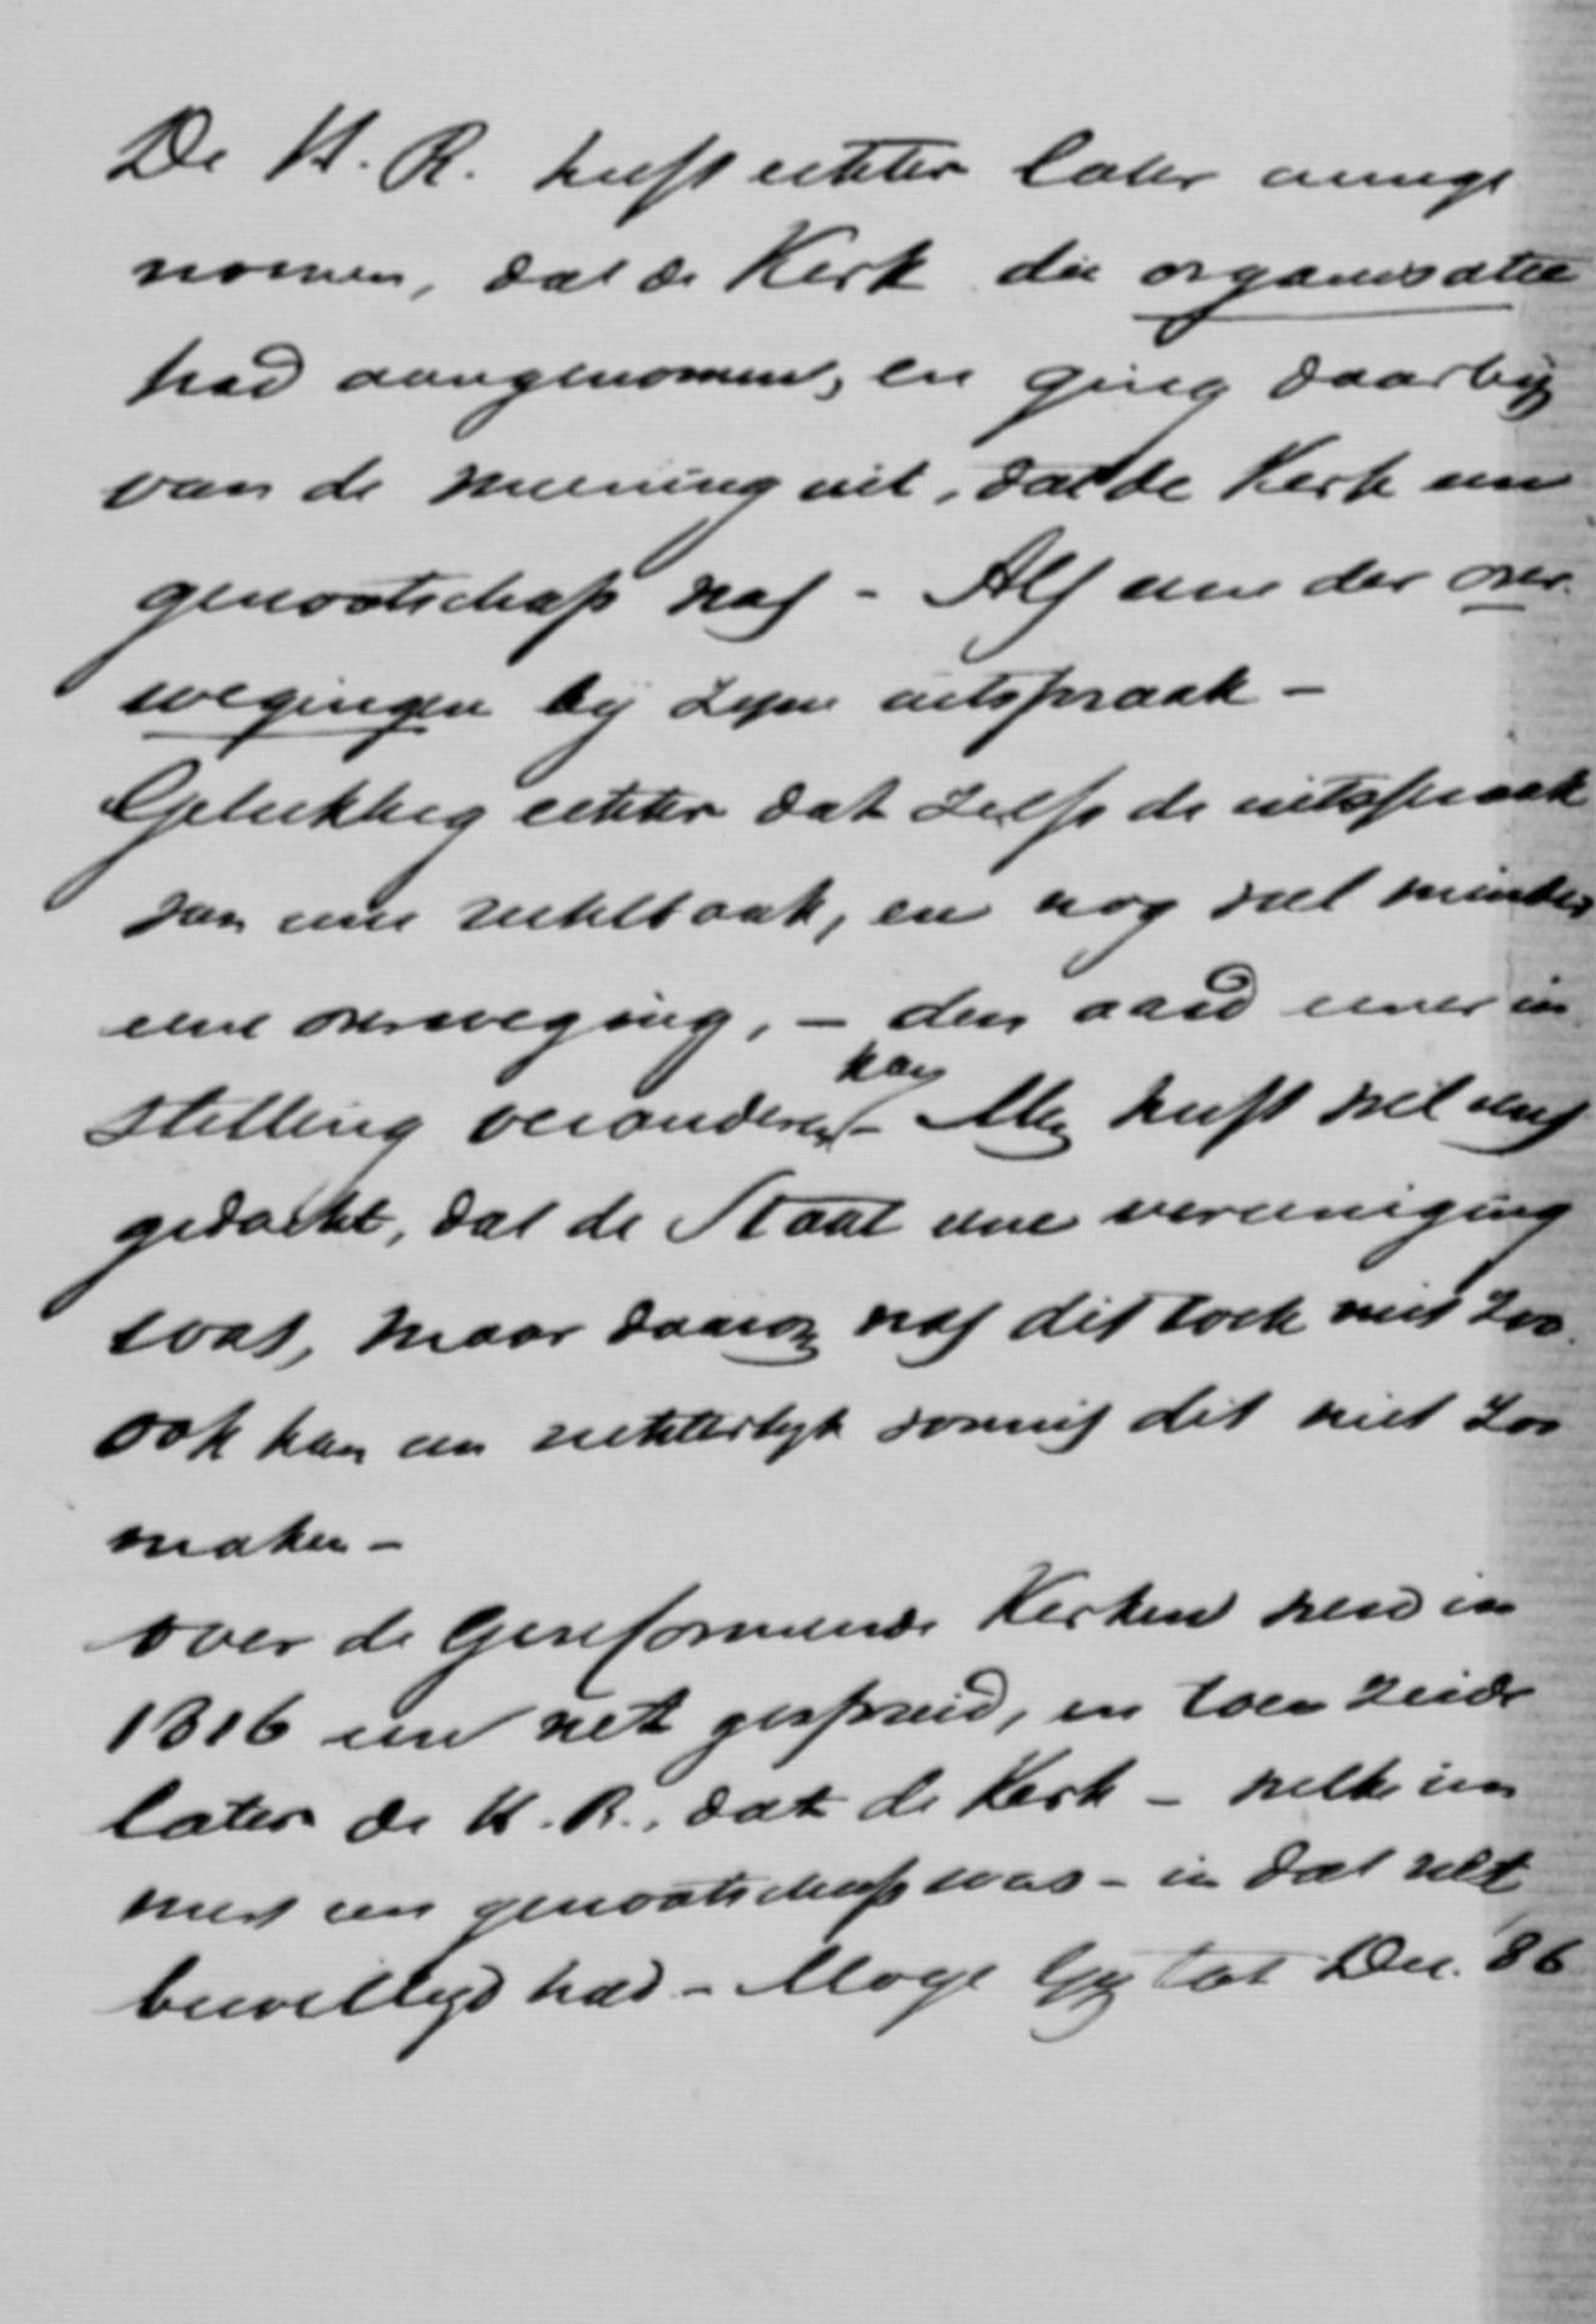 De H. R. heeft echter later aange
nomen, dat de Kerk die organisatie
had aangenomen, en ging daarbij
van de meening uit, dat de Kerk een
genootschap was - Als eene der over-
wegingen bij zijne uitspraak -
Gelukkig echter dat zelfs de uitspraak
van eene rechtbank, en nog veel minder
eene overweging, - den aard eener in
kan
stelling veranderen - Men heeft wel eens
gedacht, dat de Staat eene vereeniging
was, maar daarom was dit toch niet zoo
ook kan een rechterlijk vonnis dit niet zoo
maken -
over de Gereformeerde Kerken werd in
1816 een net gespreid, en toen zeide
later de H. R., dat de Kerk - welke im
mers een genootschap was - in dat net
bewilligd had - Moge Gij tot Dec. 86